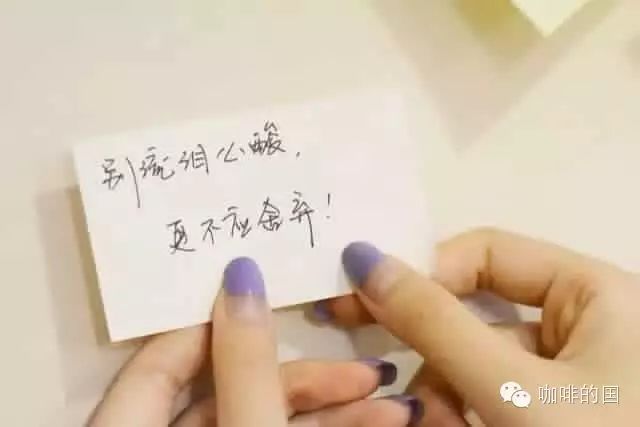 别流泪心酸，
更不应舍弃！
咖啡的国